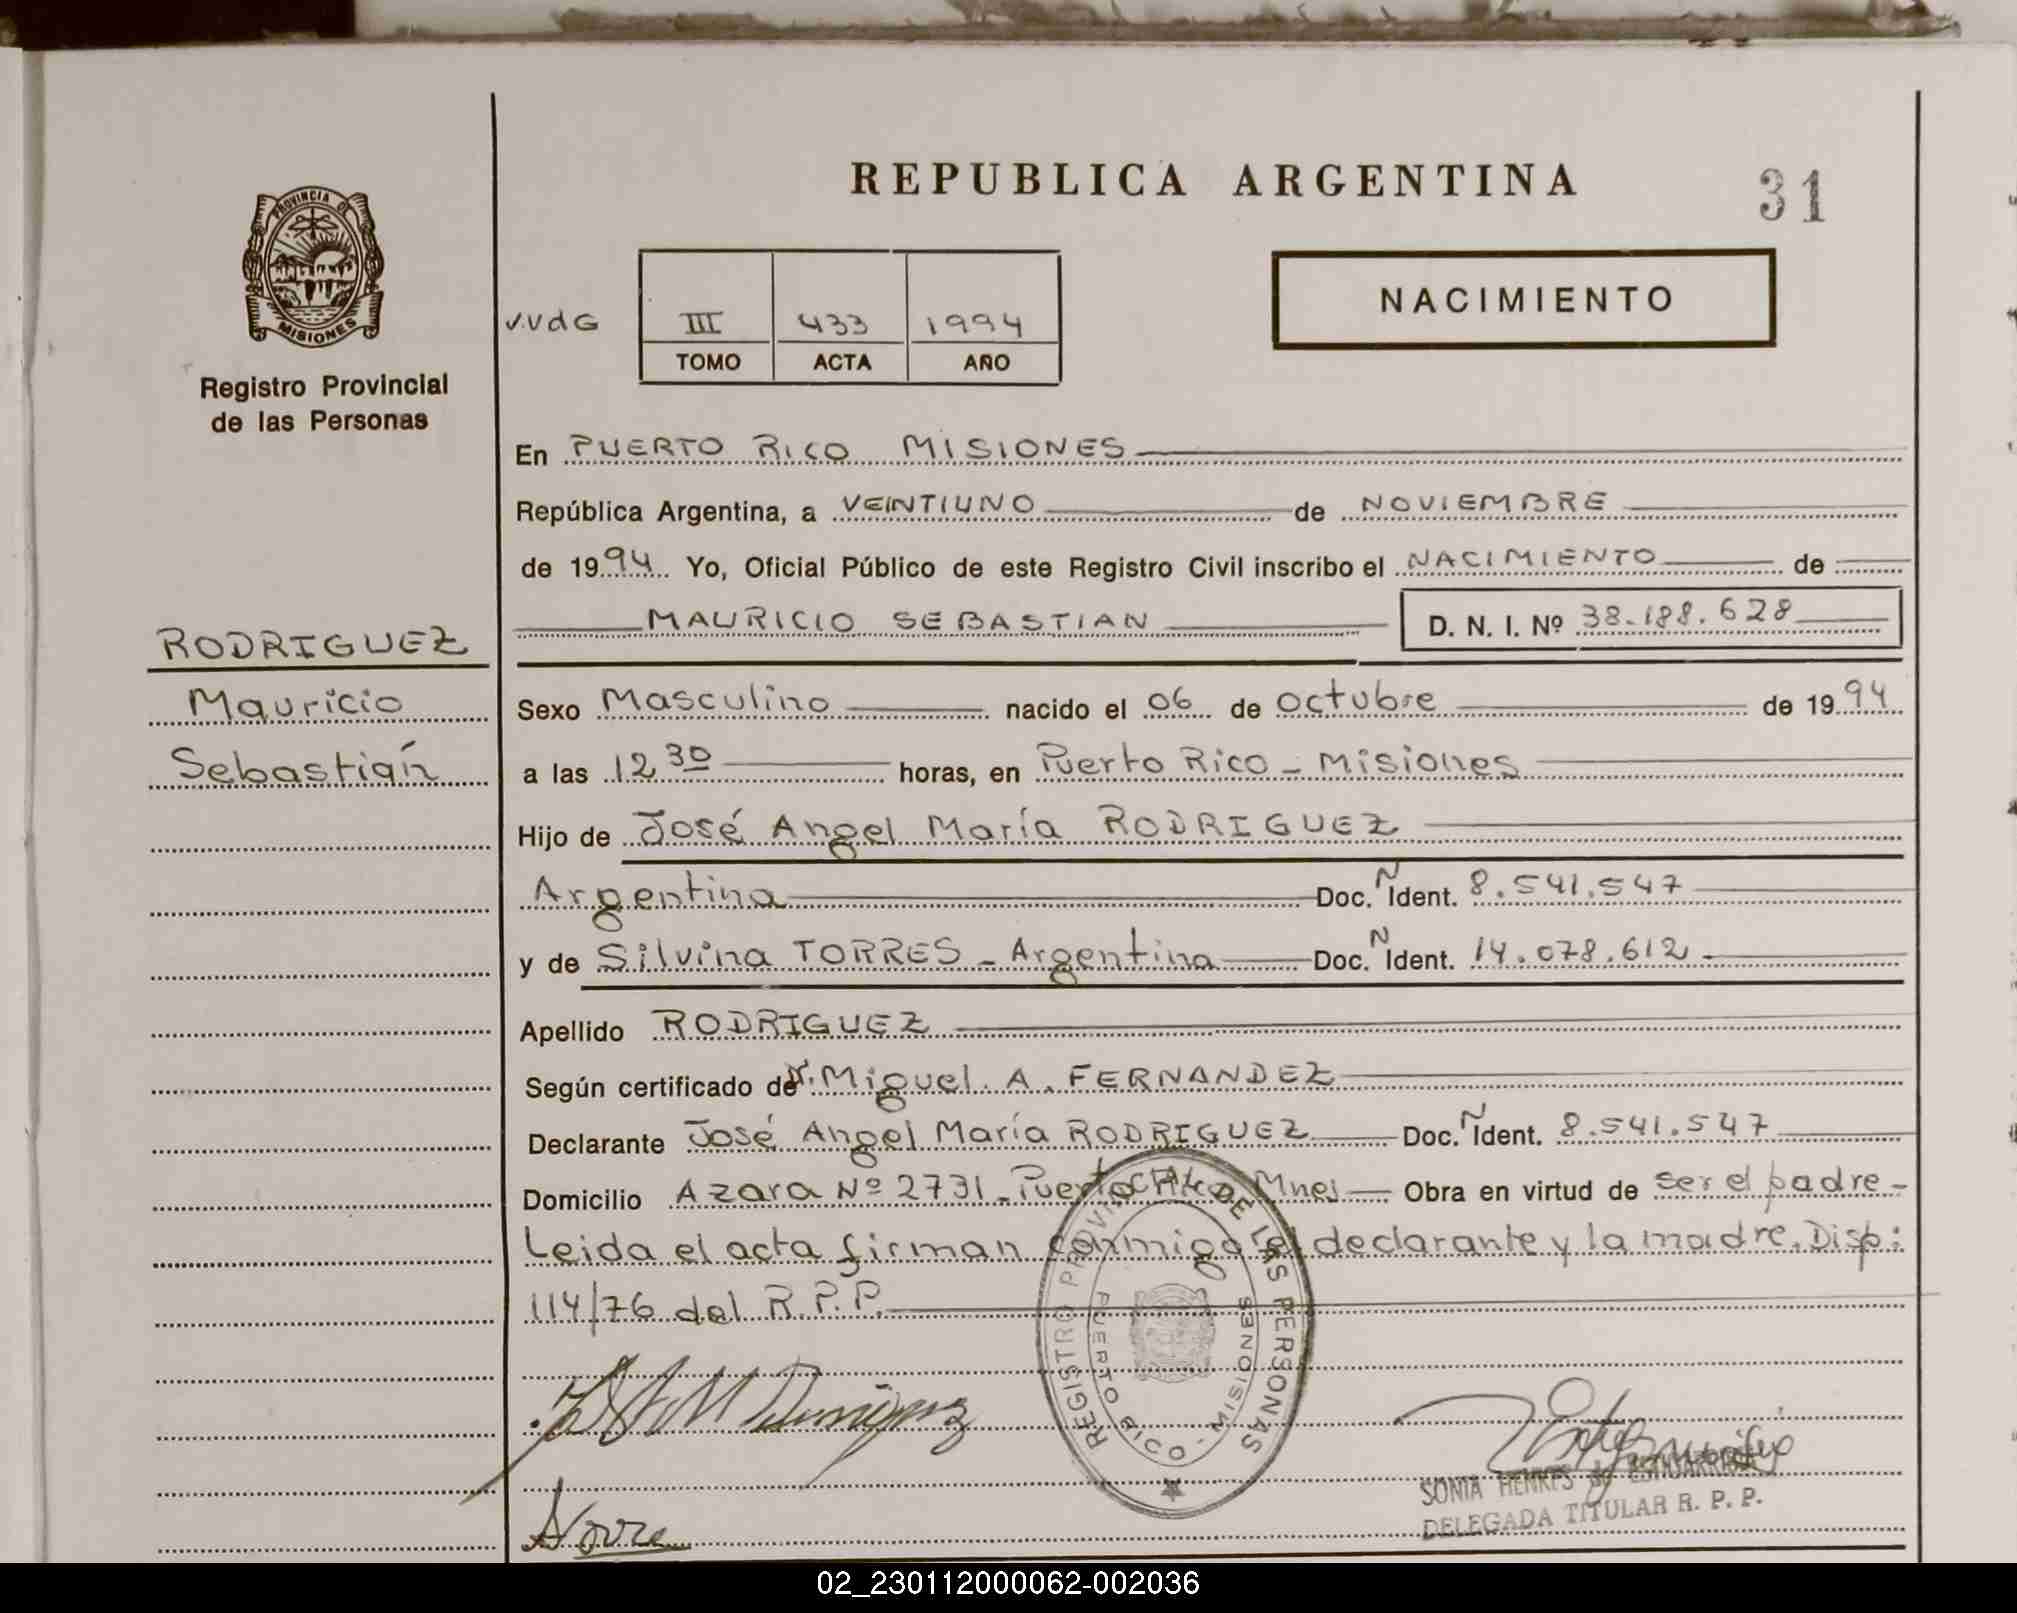 REPUBLICA ARGENTINA
31
PROVINCIA DE
MISIONES
Registro Provincial
de las Personas
V.VdG
III 433 1994
TOMO ACTA AÑO
NACIMIENTO
En PUERTO RICO MISIONES
República Argentina, a VEINTIUNO de NOVIEMBRE
de 1994 Yo, Oficial Público de este Registro Civil inscribo el NACIMIENTO de
MAURICIO SEBASTIAN D. N. I. Nº 38.188.628
RODRIGUEZ
Mauricio
Sebastián
Sexo Masculino nacido el 06 de octubre de 1994
a las 12 30 horas, en Puerto Rico - Misiones
Hijo de José Angel María RODRIGUEZ
Argentina Doc. Ñ Ident. 8.541.547
y de Silvina TORRES - Argentina Doc. N Ident. 14.078.612
Apellido RODRIGUEZ
Según certificado de Dr. Miguel A. FERNANDEZ
Declarante José Angel María RODRIGUEZ Doc. Ñ Ident. 8.541.547
Domicilio Azara Nº 2731 - Puerto Rico Mnes Obra en virtud de ser el padre -
Leida el acta firman conmigo el declarante y la madre. Disp:
114/76 del R.P.P.
REGISTRO PROVINCIAL DE LAS PERSONAS
PUERTO RICO - MISIONES
SONIA HENKES de
DELEGADA TITULAR R. P. P.
02_230112000062-002036